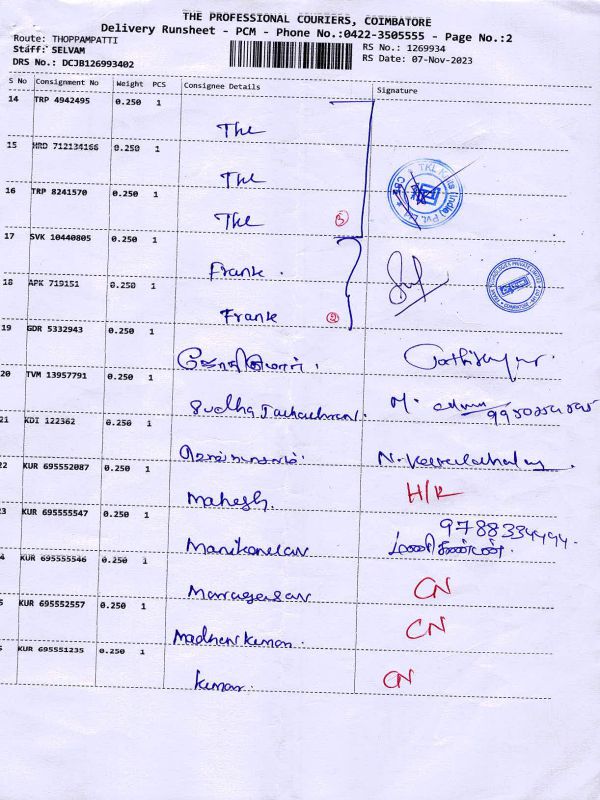 THE PROFESSIONAL COURIERS, COIMBATORE
Delivery Runsheet - PCM - Phone No.:0422-3505555 - Page No.:2
Route: THOPPAMPATTI
RS No.: 1269934
Staff: SELVAM
RS Date: 07-Nov-2023
DRS No.: DCJB126993402
S No Consignment No Weight PCS Consignee Details Signature
14 TRP 4942495 0.250 1
The
15 MRD 712134166 0.250 1
The
16 TRP 8241570 0.250 1
The
3
17 SVK 10440805 0.250 1
Frank.
18 APK 719151 0.250 1
Frank
2
19 GDR 5332943 0.250 1
20 TVM 13957791 0.250 1
Sudha
M.
21 KDI 122362 0.250 1
N.
22 KUR 695552087 0.250 1
Mahesh.
H/R
3 KUR 695555547 0.250 1
9788334494
Manikandan
மணிகண்டன்.
4 KUR 695555546 0.250 1
Murugesan
CN
5 KUR 695552557 0.250 1
Madhan kumar.
CN
KUR 695551235 0.250 1
kumar.
CN